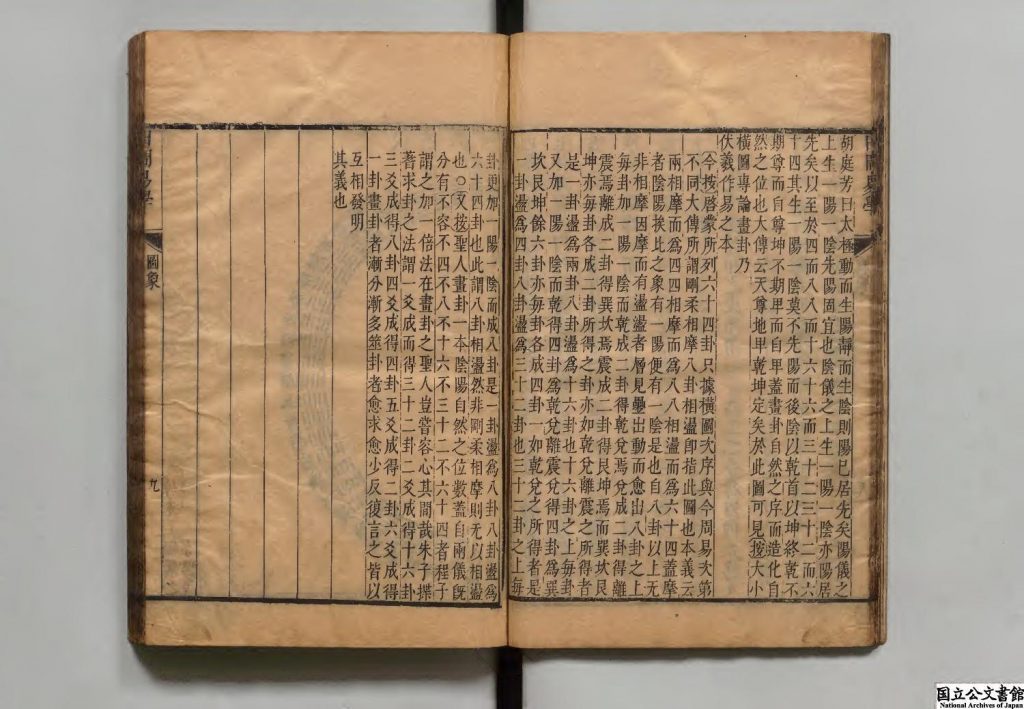 胡庭芳曰太極動而生陽靜而生陰則陽已居先矣陽儀之
上生一陽一陰先陽固宜也陰儀之上生一陽一陰亦陽居
先矣以至於四而八八而十六十六而三十二三十二而六
十四其生一陽一陰莫不先陽而後陰以乾首以坤終乾不
期尊而自尊坤不期卑而自卑蓋畫卦自然之序而造化自
然之位也大傳云天尊地卑乾坤定矣於此圖可見按大小
橫圖專論畫卦乃
伏羲作易之本
今按啓蒙所列六十四卦只據橫圖次序與今周易次第
不同大傳所謂剛柔相摩八卦相盪卽指此圖也本義云
兩相摩而爲四四相摩而爲八八相盪而爲六十四蓋摩
者陰陽挨比之象有一陽便有一陰是也自八卦以上无
非相摩因摩而有盪盪者層見疊出動而愈出八卦之上
每卦加一陽一陰而乾成二卦得乾兌焉兌成二卦得離
震焉離成二卦得巽坎焉震成二卦得艮坤焉而巽坎艮
坤亦每卦各成二卦所得之卦亦如乾兌離震之所得者
是一卦盪爲兩卦八卦盪爲十六卦也十六卦之上每卦
又加一陽一陰而乾得四卦爲乾兌離震兌得四卦爲巽
坎艮坤餘六卦亦每卦各成四卦一如乾兌之所得者是
一卦盪爲四卦八卦盪爲三十二卦也三十二卦之上每
卦更加一陽一陰而成八卦是一卦盪爲八卦八卦盪爲
六十四卦也此謂八卦相盪然非剛柔相摩則无以相盪
也○又按聖人畫卦一本陰陽自然之位數蓋自兩儀旣
分有不容不四不八不十六不三十二不六十四者程子
謂之加一倍法在畫卦之聖人豈嘗容心其間哉朱子揲
蓍求卦之法謂一爻成得三十二卦二爻成得十六卦
三爻成得八卦四爻成得四卦五爻成得二卦六爻成得
一卦畫卦者漸分漸多筮卦者愈求愈少反復言之皆以
互相發明
其義也
圖象
九
国立公文書館
National Archives of Japan